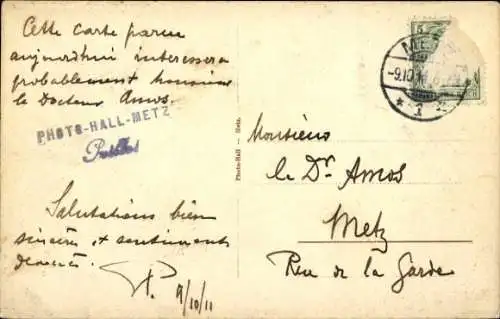 Cette carte parue
aujourd'hui interessera
probablement monsieur
le Docteur Amos.
PHOTO-HALL-METZ
Salutations bien
sincères et sentiments
dévoués.
P. 9/10/11
Photo-Hall – Metz.
METZ
-9.10.11
* 1
5
Monsieur
le Dr. Amos
Metz
Rue de la Garde